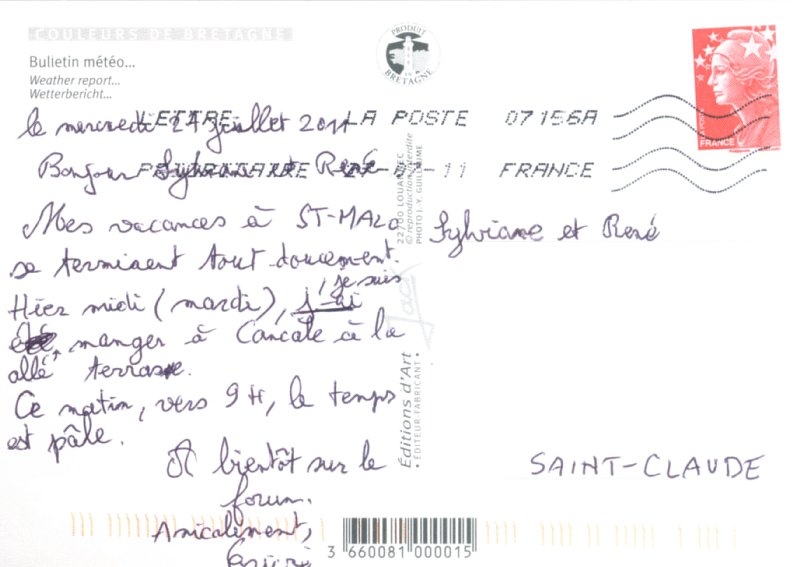 COULEURS DE BRETAGNE
PRODUIT
EN
BRETAGNE
Bulletin météo...
Weather report...
Wetterbericht...
LETTRE LA POSTE 07156A
27-07-11 FRANCE
LA POSTE
FRANCE
le mercredi 27 juillet 2011
Bonjour Sylviane et René
Mes vacances à ST-MALO
se termiaent tout doucement.
Hier midi (mardi), j'ai je suis
été allé manger à Cancale à la
terrasse.
Ce matin, vers 9 H, le temps
est pâle.
A bientôt sur le
forum.
Amicalement,
Sylviane et René
SAINT-CLAUDE
22700 LOUANNEC
© reproduction interdite
PHOTO J.-Y. GUILLAUME
Jack
Éditions d'Art
• ÉDITEUR-FABRICANT •
3 660081 000015